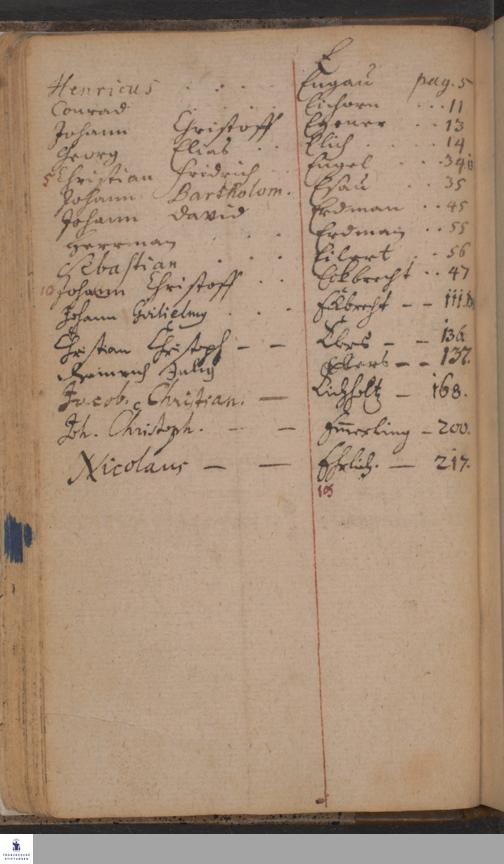 E
Henricus . . . Engau pag. 5
Conrad . . . Eichorn . . 11
Johann Christoff . . 13
Georg Elias . . Elich . . 14
5 Christian Fridrich . . Engel . . 34
Johann Bartholom. Esau . . 35
Johann David Erdman . . 45
Herrman . . . Erdman . . 55
Sebastian . . . Eilert . . 56
10 Johann Christoff . . Eckbrecht . . 47
Johann . . . Eckbrecht – – 111.
Christian Christoph – – Ebers – – 136.
Heinrich Julig Eggers – – 137.
Jacob. Christian. – Eichholtz – 168.
Joh. Christoph. – – Emmerling – 200.
Nicolaus – – Ehrlich. – 217.